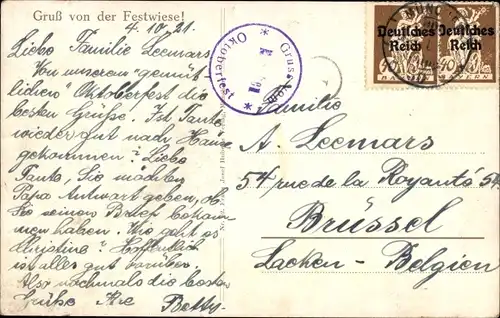 Gruß von der Festwiese!
4.10.21.
Liebe Familie Leemars
Von unserem "gemüt
lichen" Oktoberfest die
besten Grüße. Ist Tante
wieder gut nach Hause
gekommen? Liebe
Tante, Sie möchten
Papa Antwort geben, ob
Sie seinen Brief bekom
men haben. Wie geht es
Christine? Hoffentlich
ist alles gut vorüber.
Also nochmals die besten
Grüße Ihre Betty.
* Gruss vom * Oktoberfest
Deutsches Reich
Deutsches Reich
40
40
BAYERN
MÜNC
Familie
A. Leemars
54 rue de la Royauté 54
Brüssel
Laeken - Belgien